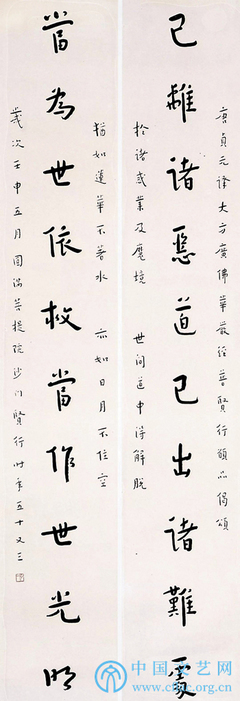 唐貞元譯大方廣佛華嚴經普賢行願品偈頌
已離諸惡道已出諸難處
於諸惑業及魔境 世間道中得解脫
猶如蓮華不著水 亦如日月不住空
當為世依救當作世光明
歲次壬申五月圓滿菩提院沙門賢行時年五十又三
中国文艺网
www.cflac.org.cn